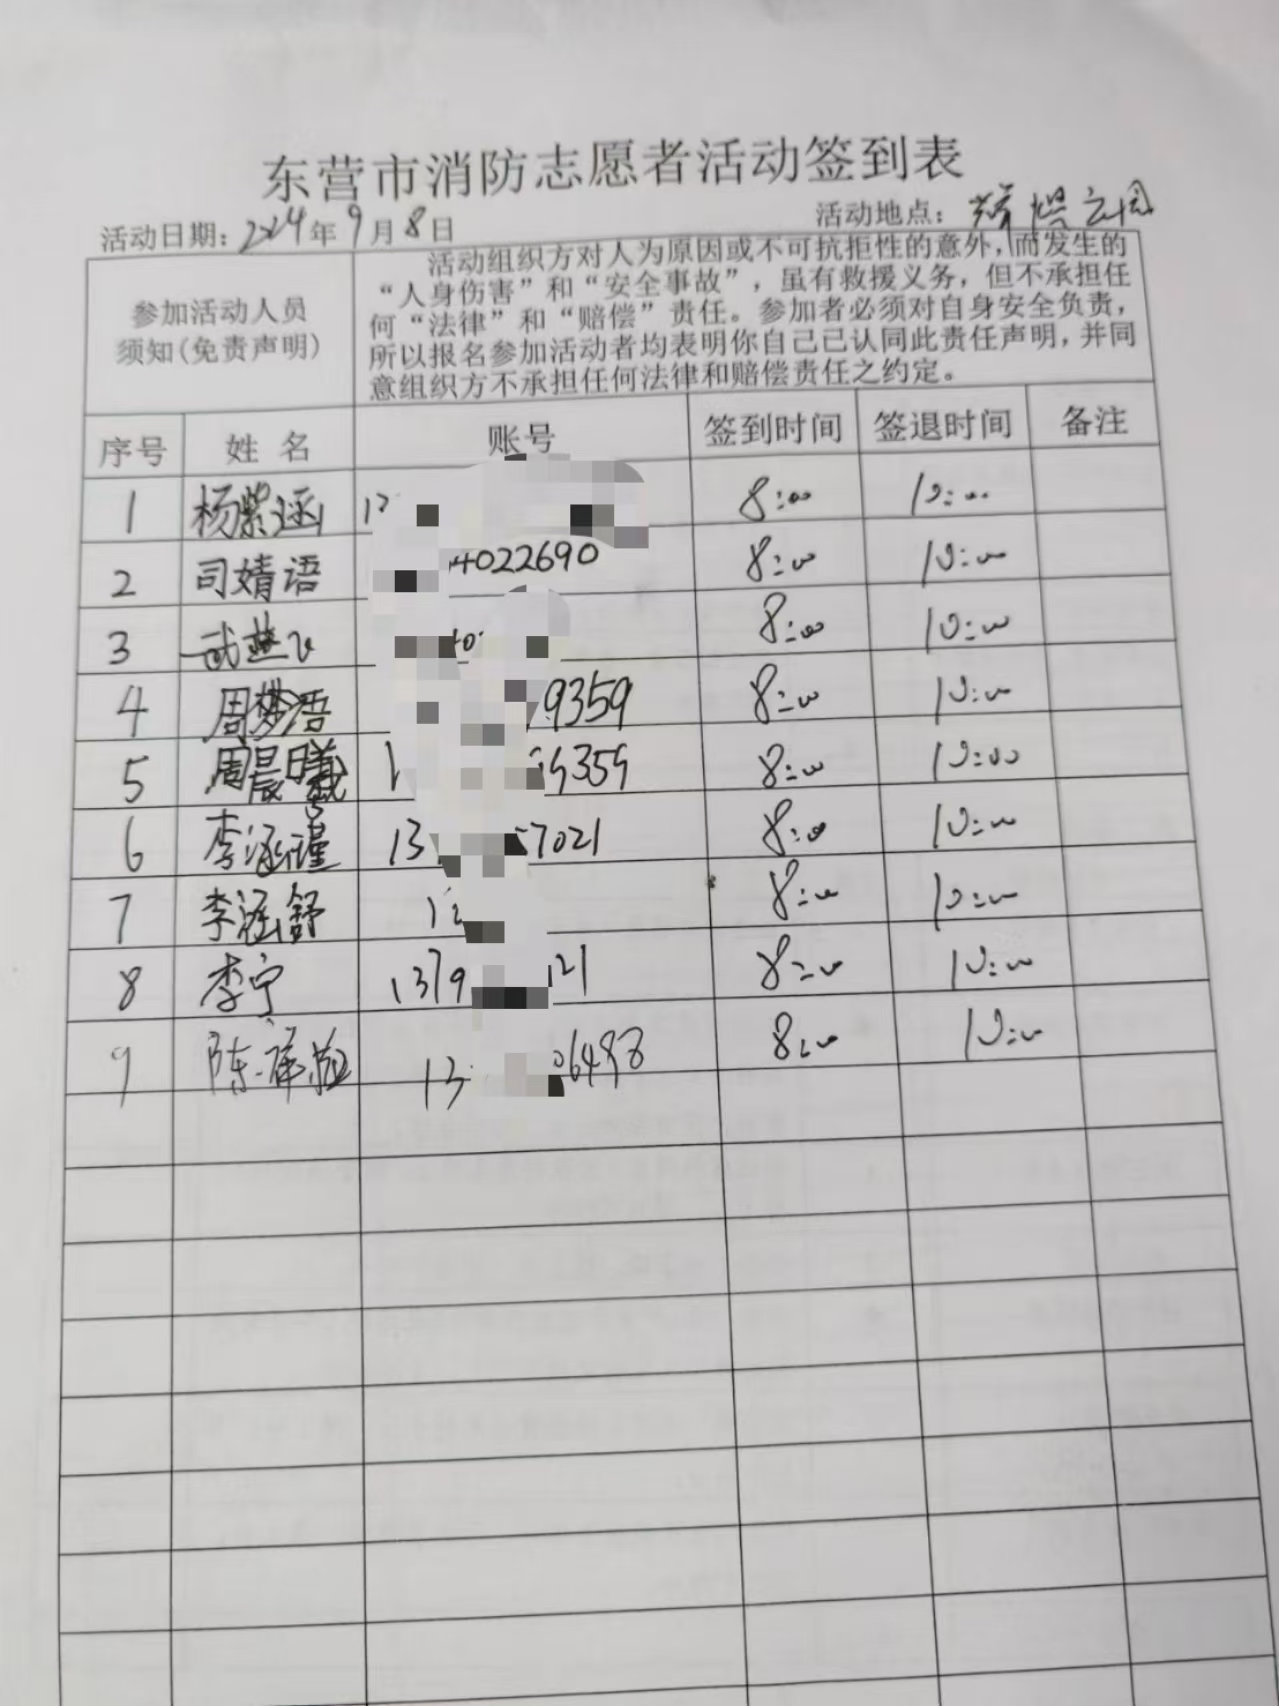 东营市消防志愿者活动签到表
活动日期：2024年9月8日 活动地点：
参加活动人员
须知(免责声明)
活动组织方对人为原因或不可抗拒性的意外，而发生的
“人身伤害”和“安全事故”，虽有救援义务，但不承担任
何“法律”和“赔偿”责任。参加者必须对自身安全负责，
所以报名参加活动者均表明你自己已认同此责任声明，并同
意组织方不承担任何法律和赔偿责任之约定。
序号 姓名 账号 签到时间 签退时间 备注
1 杨紫涵 8:00 10:00
2 司婧语 4022690 8:00 10:00
3 武 8:00 10:00
4 周梦浯 9359 8:00 10:00
5 周晨曦 9359 8:00 10:00
6 李涵瑾 13 57021 8:00 10:00
7 李涵舒 8:00 10:00
8 李宁 1379 21 8:00 10:00
9 陈 13 06498 8:00 10:00